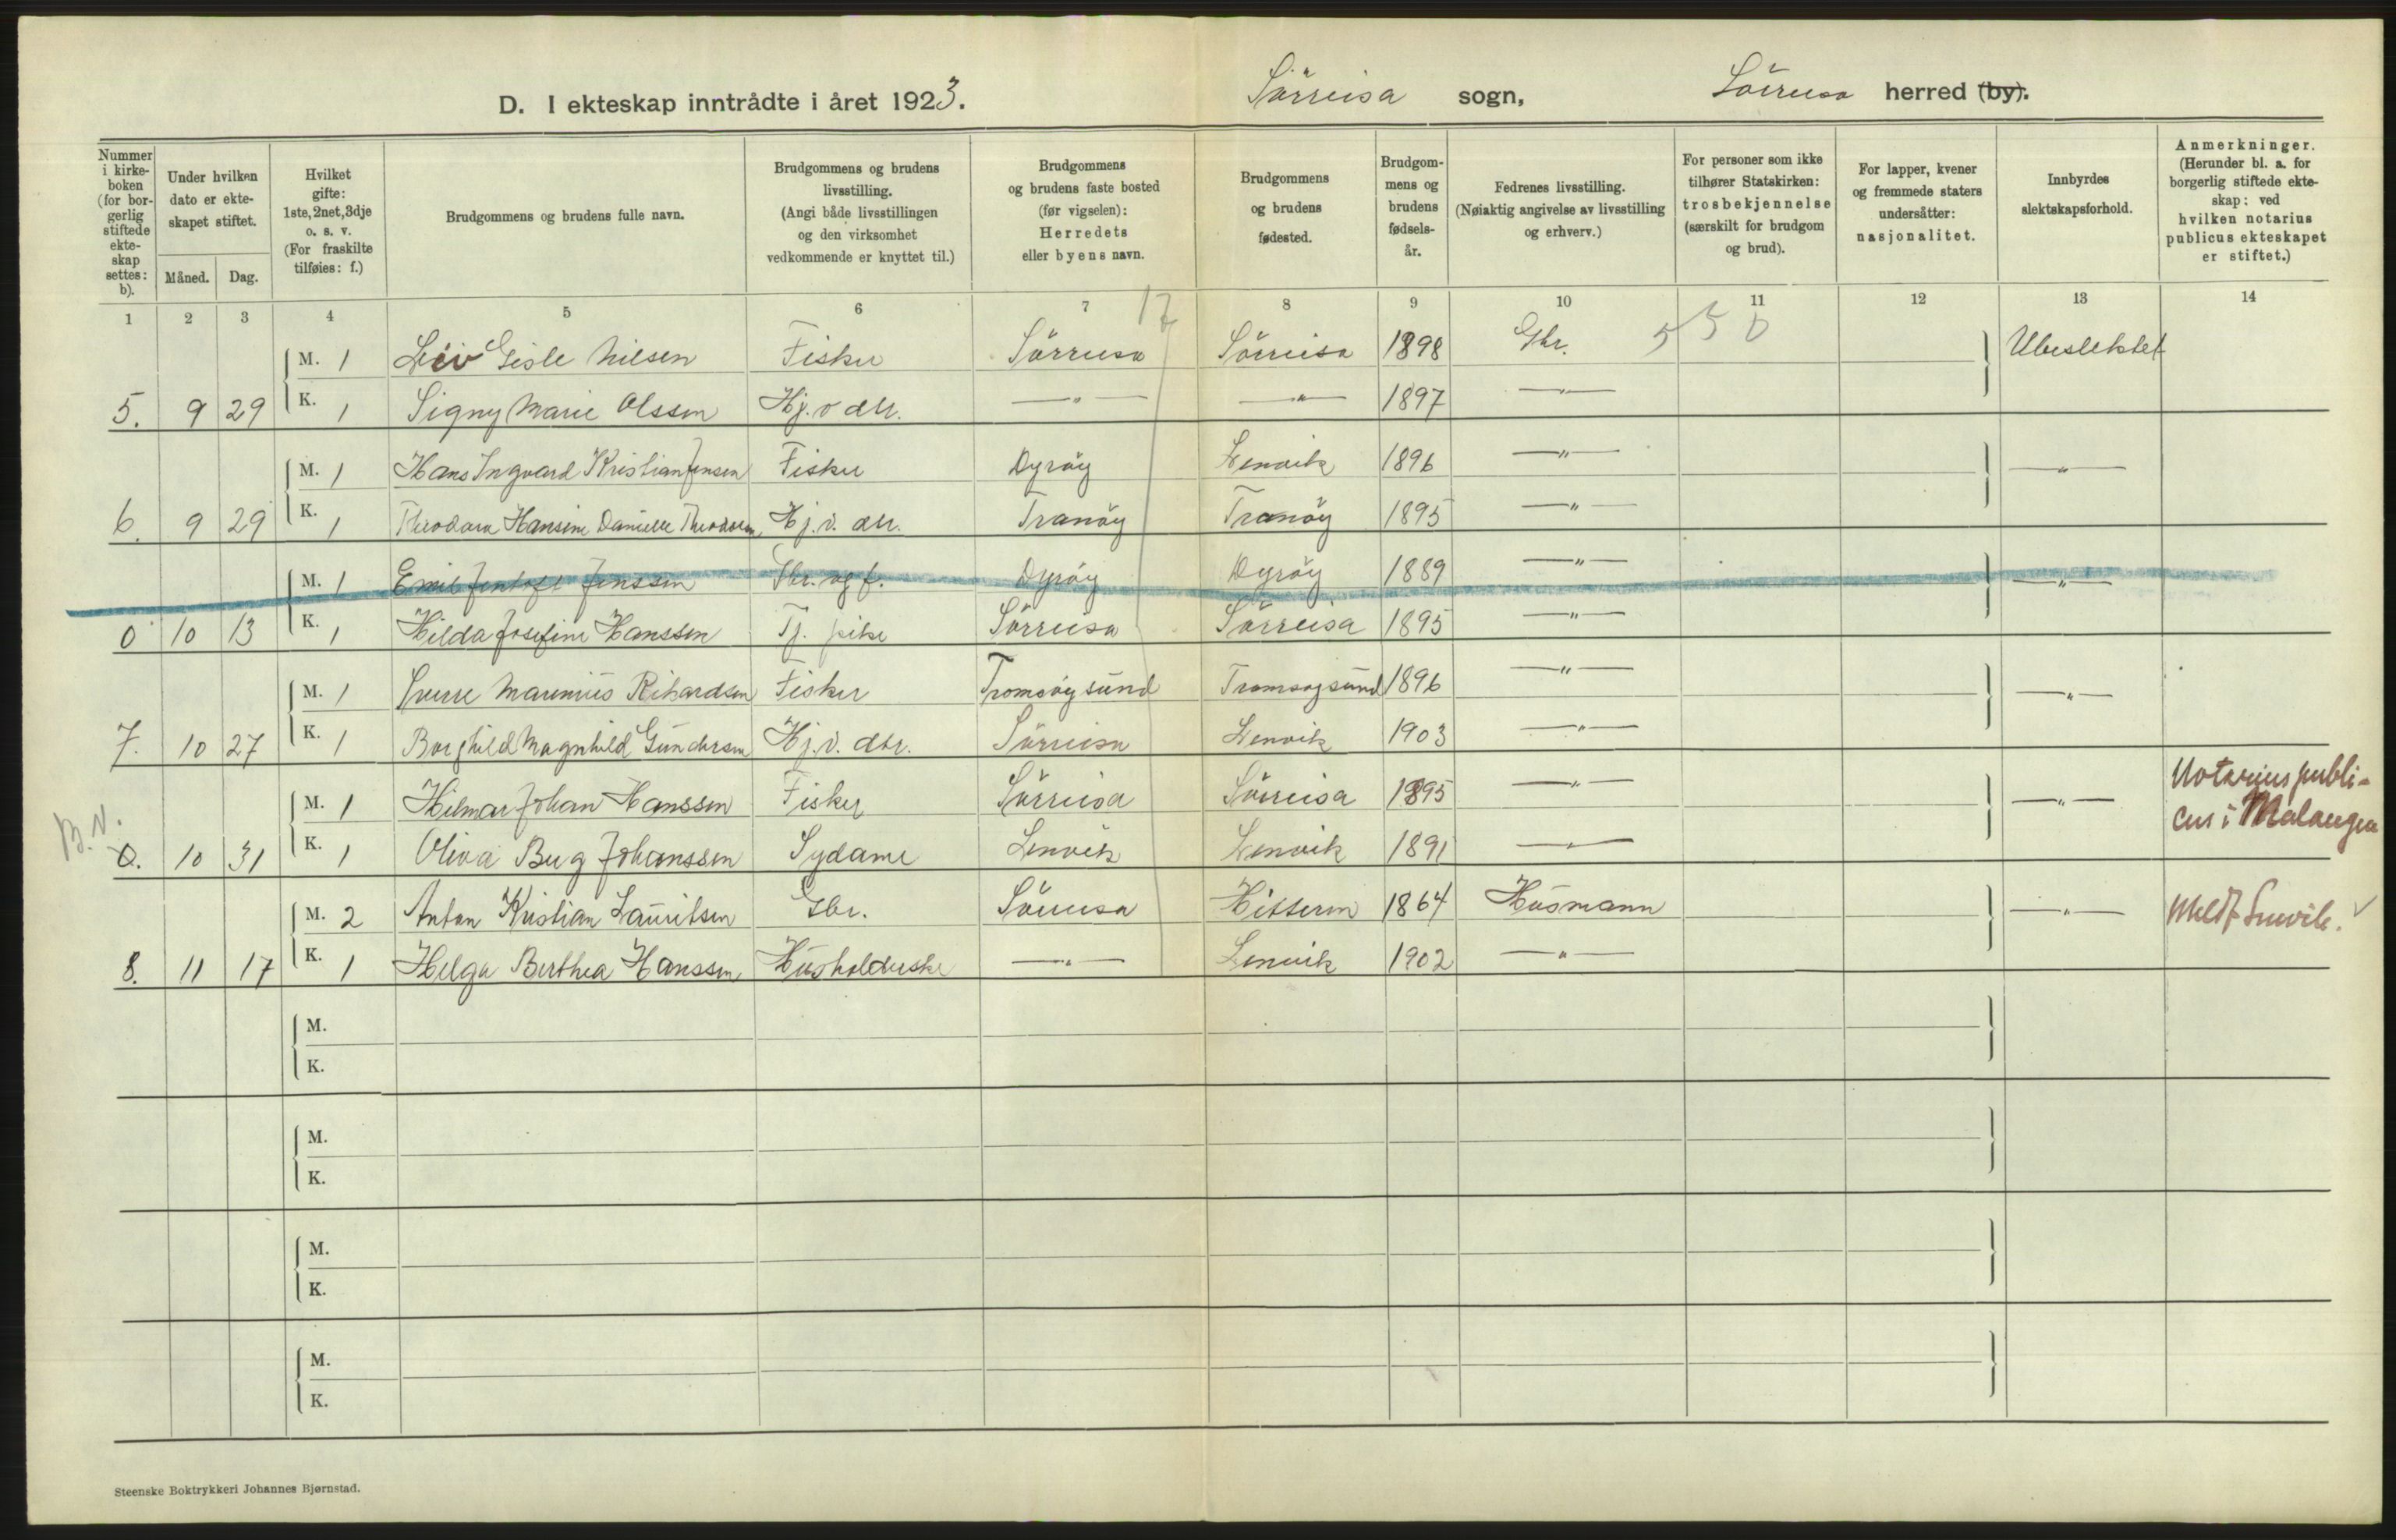 D. I ekteskap inntrådte i året 1923. Sörreisa sogn, Sörreisa herred (by).
Nummer i kirkeboken (for borgerlig stiftede ekteskap settes: b).
Under hvilken dato er ekteskapet stiftet.
Måned. Dag.
Hvilket gifte: 1ste, 2net, 3dje o. s. v. (For fraskilte tilføies: f.)
Brudgommens og brudens fulle navn.
Brudgommens og brudens livsstilling. (Angi både livsstillingen og den virksomhet vedkommende er knyttet til.)
Brudgommens og brudens faste bosted (før vigselen): Herredets eller byens navn.
Brudgommens og brudens fødested.
Brudgommens og brudens fødselsår.
Fedrenes livsstilling. (Nøiaktig angivelse av livsstilling og erhverv.)
For personer som ikke tilhører Statskirken: trosbekjennelse (særskilt for brudgom og brud).
For lapper, kvener og fremmede staters undersåtter: nasjonalitet.
Innbyrdes slektskapsforhold.
Anmerkninger. (Herunder bl. a. for borgerlig stiftede ekteskap: ved hvilken notarius publicus ekteskapet er stiftet.)
1 2 3 4 5 6 7 8 9 10 11 12 13 14
17 5 5 0
M. 1 Leiv Gisle Nilsen Fisker Sörreisa Sörreisa 1898 Gbr. Ubeslektet
5. 9 29 K. 1 Signy Marie Olssen Hj. v dtr. —"— —"— 1897 —"—
M. 1 Hans Ingvard Kristian Jensen Fisker Dyröy Lenvik 1896 —"— —"—
6. 9 29 K. 1 Theodora Hansine Danielle Theodorsen Hj. v. dtr. Tranöy Tranöy 1895 —"—
M. 1 Emil Jentoft Jenssen Gbr. og f. Dyröy Dyröy 1889 —"— —"—
0 10 13 K. 1 Hilda Josefine Hanssen Tj. pike Sörreisa Sörreisa 1895 —"—
M. 1 Sverre Marenius Rikardsen Fisker Tromsöysund Tromsöysund 1896 —"— —"—
7. 10 27 K. 1 Borghild Magnhild Gundersen Hj. v. dtr. Sörreisa Lenvik 1903 —"—
M. 1 Hilmar Johan Hanssen Fisker Sörreisa Sörreisa 1895 —"— —"— Notarius publi-
cus i Malangen
B. N. 0. 10 31 K. 1 Oliva Berg Johanssen Sydame Lenvik Lenvik 1891 —"—
M. 2 Anton Kristian Lauritsen Gbr. Sörreisa Hitteren 1864 Husmann —"— Meldt Lenvik. ✓
8. 11 17 K. 1 Helga Berthea Hanssen Husholderske —"— Lenvik 1902 —"—
M.
K.
M.
K.
M.
K.
M.
K.
Steenske Boktrykkeri Johannes Bjørnstad.